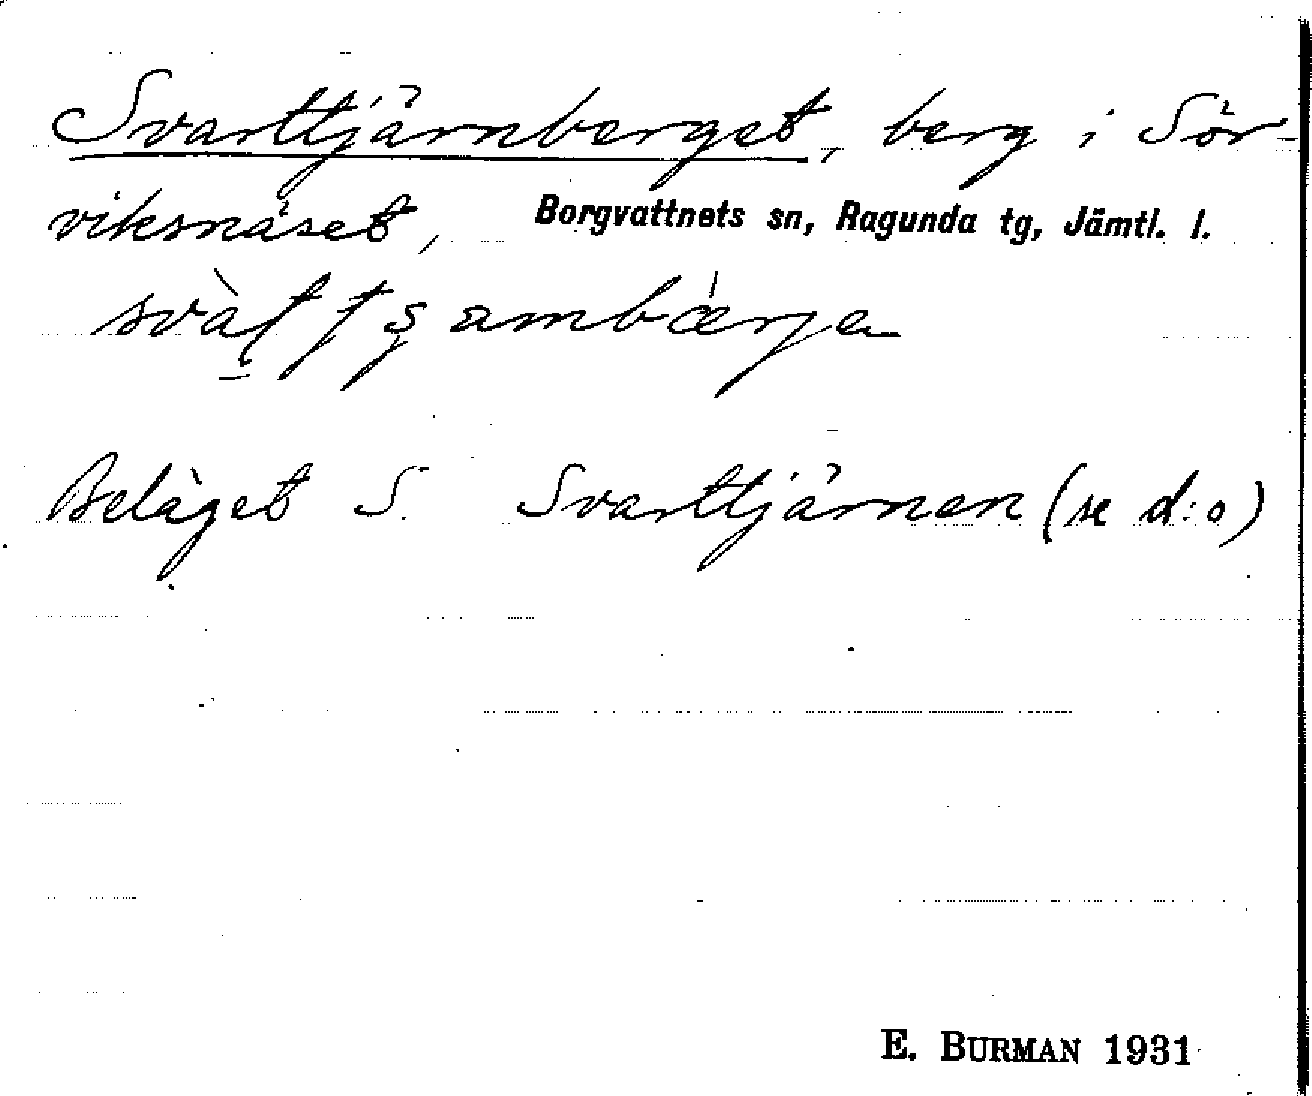 Svarttjärnberget, berg i Sör-
viksnäset, Borgvattnets sn, Ragunda tg, Jämtl. l.
Beläget S. Svarttjärnen (se d:o)
E. BURMAN 1931